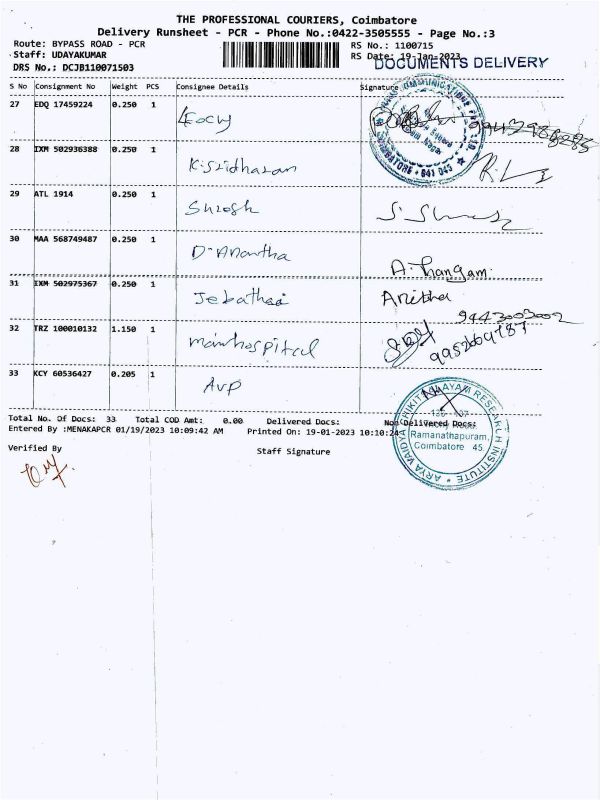 THE PROFESSIONAL COURIERS, Coimbatore
Delivery Runsheet - PCR - Phone No.:0422-3505555 - Page No.:3
Route: BYPASS ROAD - PCR
RS No.: 1100715
Staff: UDAYAKUMAR
RS Date: 19-Jan-2023
DOCUMENTS DELIVERY
DRS No.: DCJB110071503
S No Consignment No Weight PCS Consignee Details Signature
27 EDQ 17459224 0.250 1
28 IXM 502936388 0.250 1 K. Sridharan
COIMBATORE - 641 045
29 ATL 1914 0.250 1 Suresh
30 MAA 568749487 0.250 1 D. Anantha A. Thangam.
31 IXM 502975367 0.250 1 Anitha
9443003002
32 TRZ 100010132 1.150 1 mainhospital
9952669787
33 KCY 60536427 0.205 1 AVP
Total No. Of Docs: 33 Total COD Amt: 0.00 Delivered Docs: Non Delivered Docs:
Entered By :MENAKAPCR 01/19/2023 10:09:42 AM Printed On: 19-01-2023 10:10:24
Verified By
Staff Signature
ARYA VAIDYA CHIKITSALAYAM RESEARCH INSTITUTE
Ramanathapuram,
Coimbatore 45.